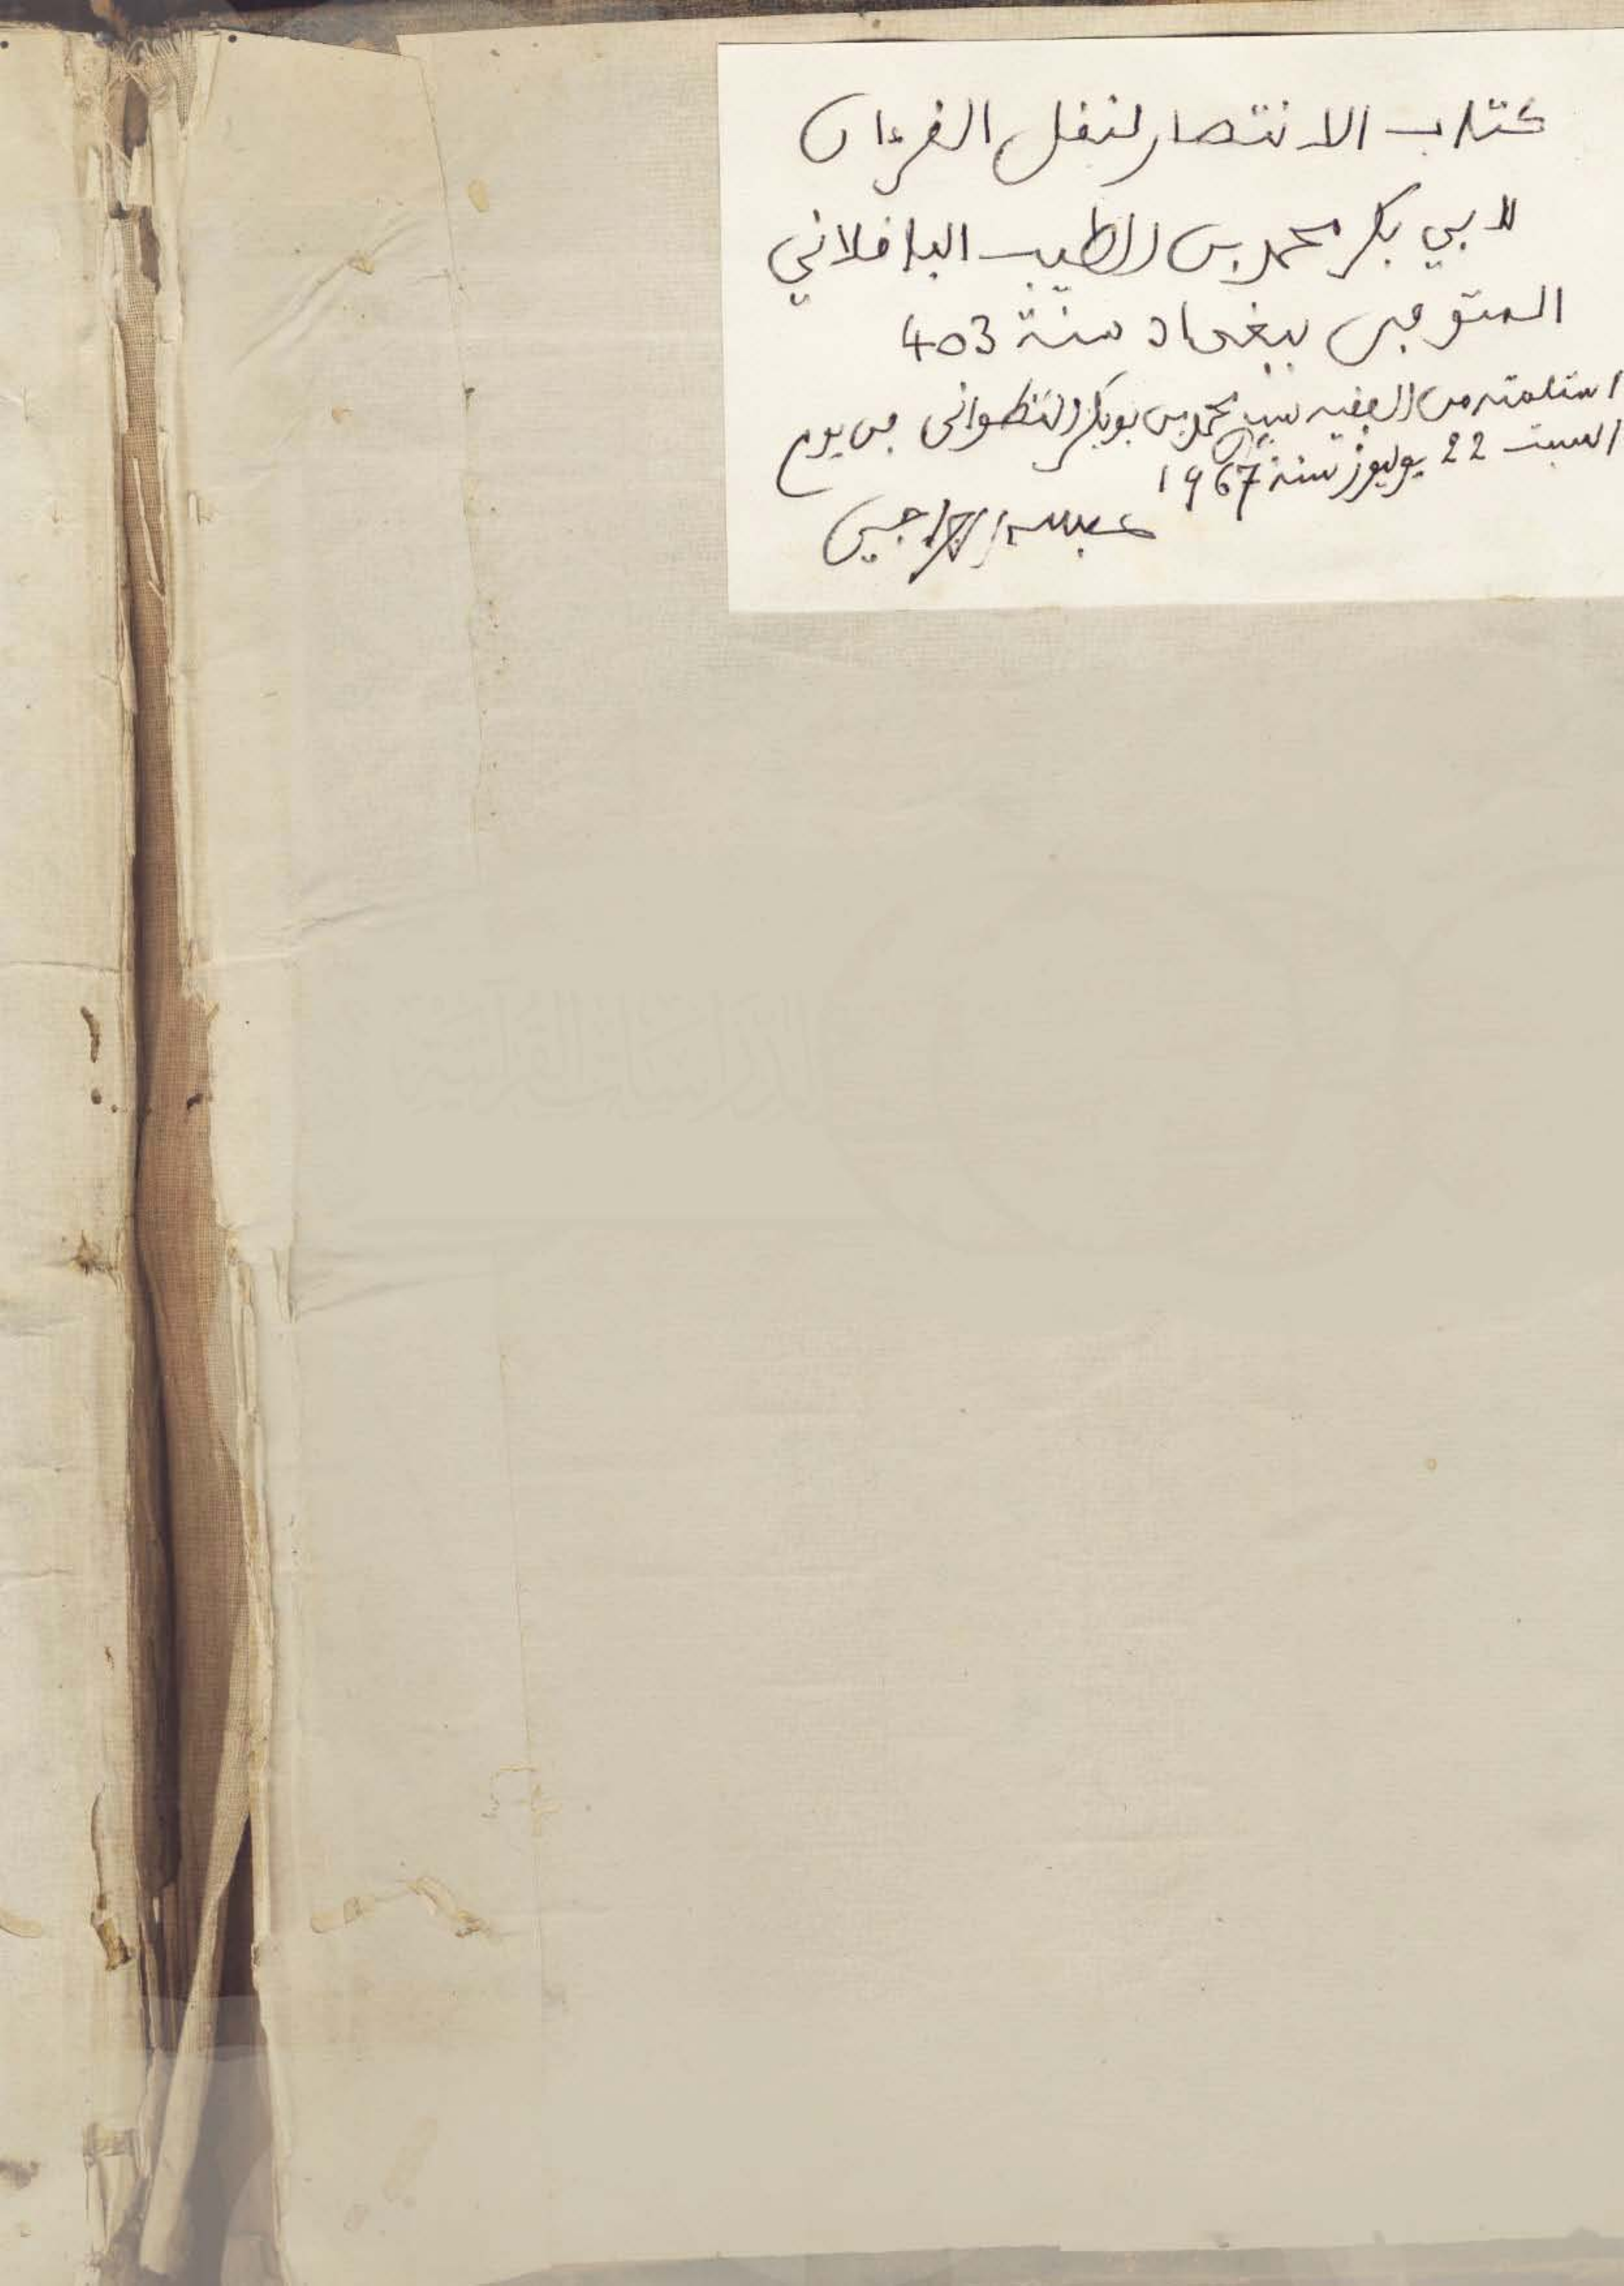 كتاب الانتصار لنقل القرءان
لابي بكر محمد بن الطيب الباقلاني
المتوفى ببغداد سنة 403
استلمته من الفقيه سيد محمد بن بوبكر التطواني في يوم
السبت 22 يوليوز سنة 1967
عبد الله الجراجي
الدراسات القرآنية